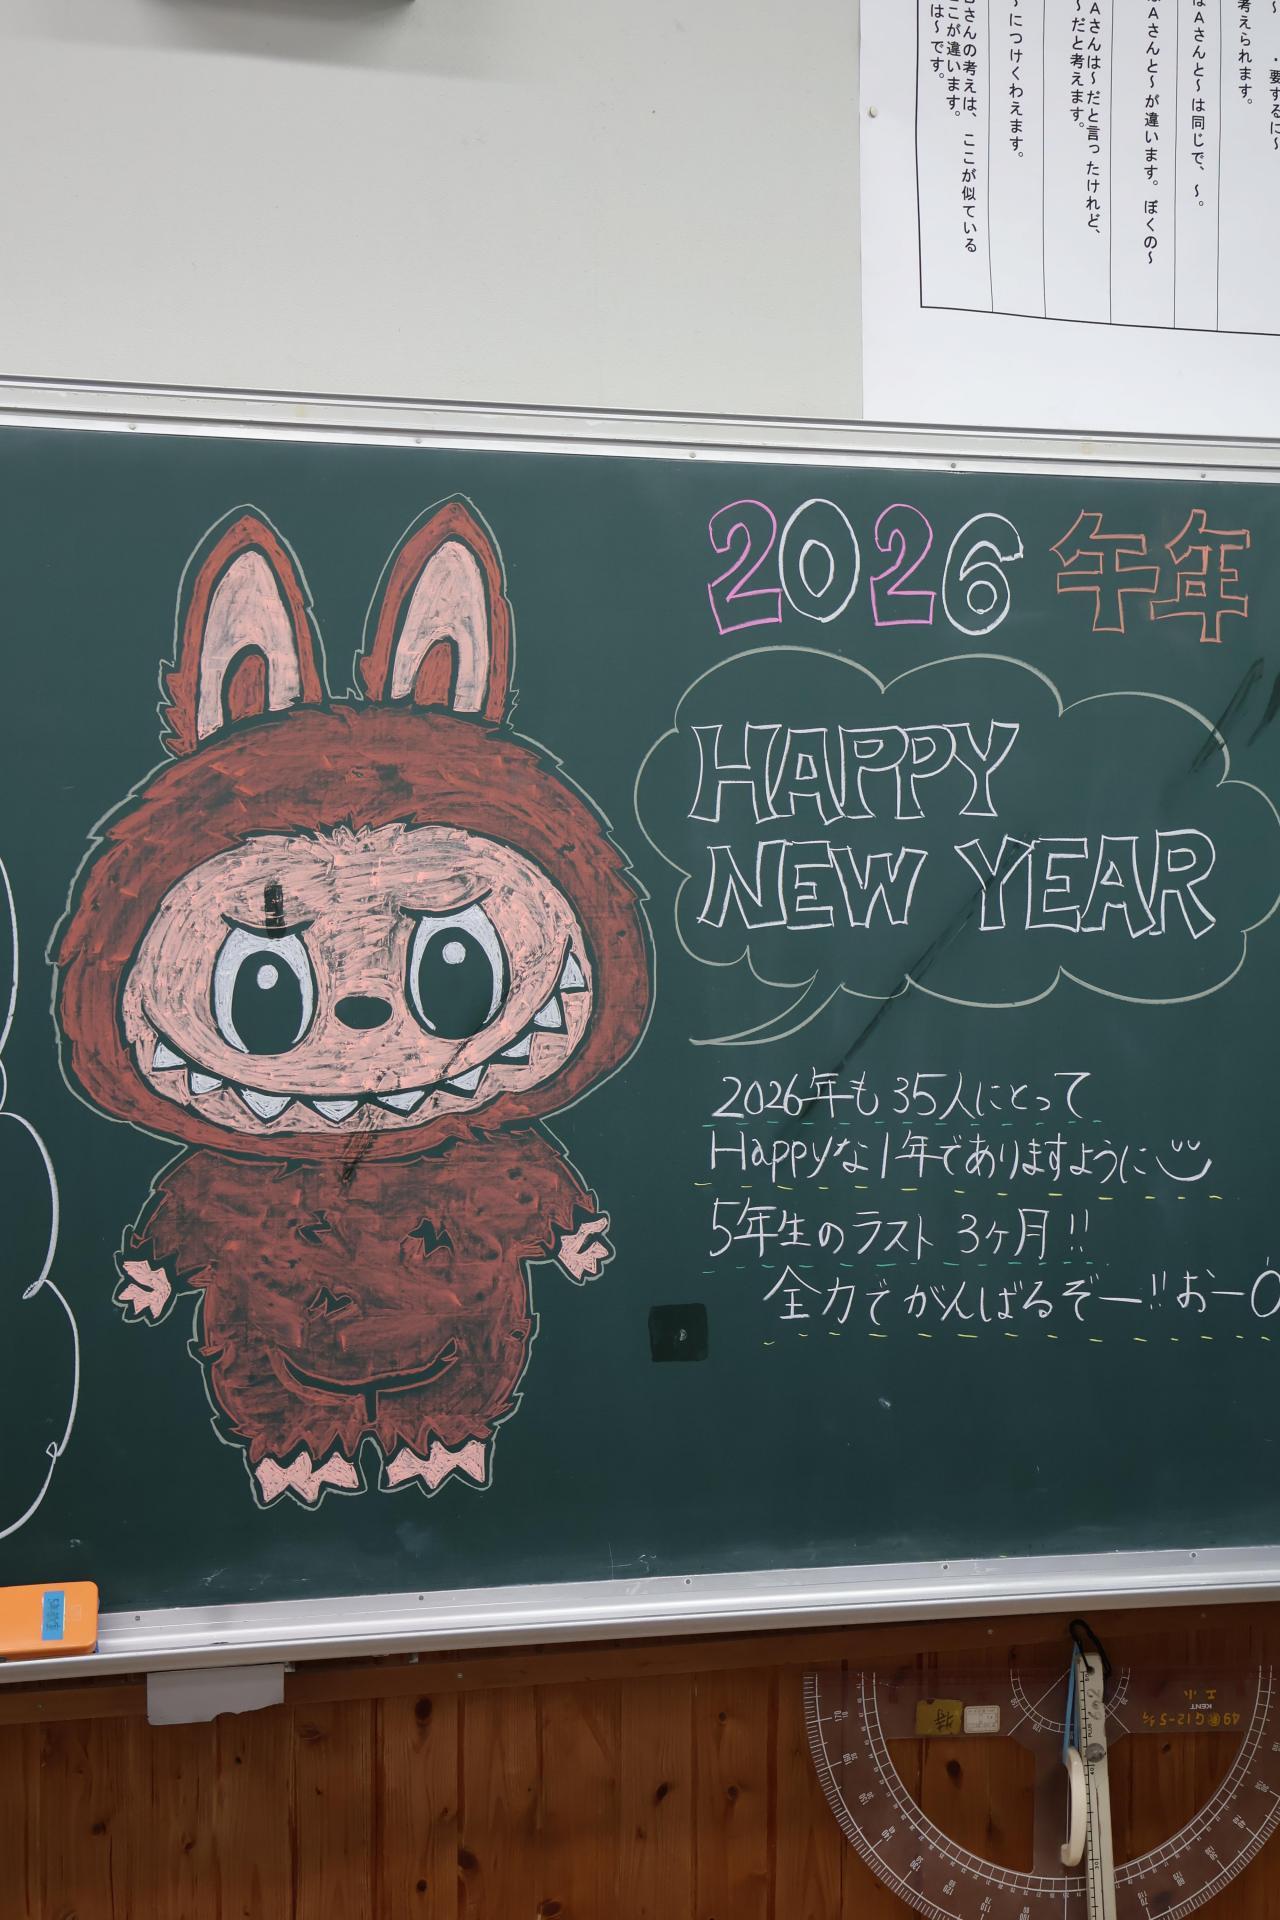 ・要するに～
考えられます。
Aさんと～は同じで、～。
Aさんと～が違います。ぼくの～
Aさんは～だと言ったけれど、
～だと考えます。
～につけくわえます。
さんの考えは、ここが似ている
こが違います。
は～です。
2026 午年
HAPPY
NEW YEAR
2026年も35人にとって
Happyな1年でありますように
5年生のラスト3ヶ月!!
全力でがんばるぞー!!おー
特
KENT